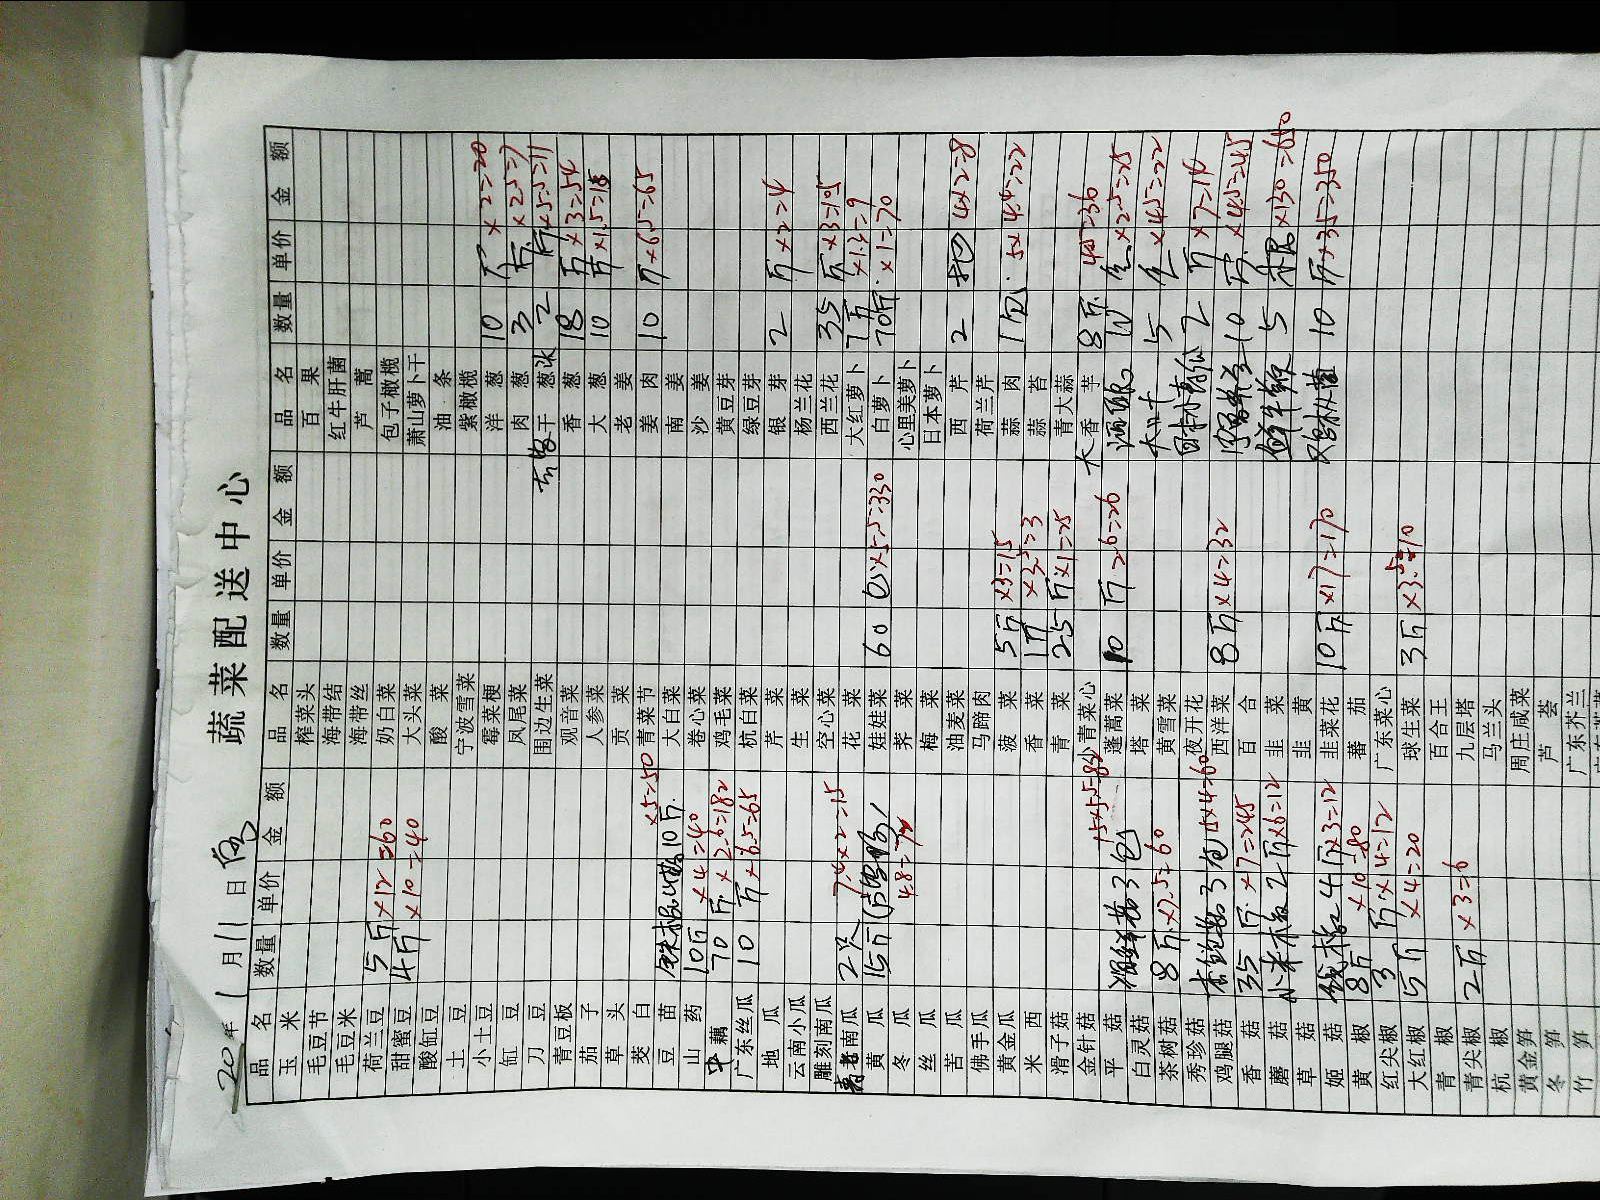 蔬菜配送中心
20 年 1 月 11 日
品名 数量 单价 金额 品名 数量 单价 金额 品名 数量 单价 金额
玉米 榨菜头 百果
毛豆节 海带结 红牛肝菌
毛豆米 海带丝 芦蒿
荷兰豆 5斤×12=60 奶白菜 包子橄榄
甜蜜豆 4斤×10=40 大头菜 萧山萝卜干
酸缸豆 酸菜 油条
土豆 宁波雪菜 紫橄榄
小土豆 霉菜梗 洋葱 10斤×2=20
缸豆 凤尾菜 肉葱 3斤×2.5=7
刀豆 围边生菜 干葱 2斤×5.5=11
青豆板 观音菜 香葱 18斤×3=54
茄子 人参菜 大葱 10斤×1.5=15
草头 贡菜 老姜
茭白 青菜节 姜肉 10斤×6.5=65
豆苗 铁棍山药10斤×5=50 大白菜 南姜
山药 10斤×4=40 卷心菜 沙姜
中藕 70斤×2.6=182 鸡毛菜 黄豆芽
广东丝瓜 10斤×6.5=65 杭白菜 绿豆芽
地瓜 芹菜 银芽 2斤×2=4
云南小瓜 生菜 杨兰花
雕刻南瓜 空心菜 西兰花 35斤×3=105
南瓜 2只 7.4×2=15 花菜 大红萝卜 7斤×1.3=9
黄瓜 15斤 娃娃菜 60 ×5.5=330 白萝卜 70斤×1=70
冬瓜 荠菜 心里美萝卜
丝瓜 梅菜 日本萝卜
苦瓜 油麦菜 西芹 2 4×2=8
佛手瓜 马蹄肉 荷兰芹
黄金瓜 菠菜 5斤×3=15 蒜肉 1包 5×4.4=22
米西 香菜 1斤×3.5=3 蒜苔
滑子菇 青菜 25斤×1=25 青大蒜
金针菇 15×5.5=83 小青菜心 大香芋 8斤 4.5=36
平菇 海鲜菇3包 蓬蒿菜 10斤 2.6=26 10 ×2.5=25
白灵菇 塔菜
茶树菇 8斤×7.5=60 黄雪菜 5 ×4.5=22
秀珍菇 3包 15×4=60 夜开花 2斤×7=14
鸡腿菇 西洋菜 8斤×4=32 10斤×4.5=45
香菇 35斤×7=245 百合
蘑菇 小米椒2斤×6=12 韭菜 5 ×130=650
草菇 韭黄
姬菇 线椒 4斤×3=12 韭菜花 10斤×17=170 鸡枞菌 10斤×35=350
黄椒 8斤×10=80 蕃茄
红尖椒 3斤×4=12 广东菜心
大红椒 5斤×4=20 球生菜 3斤×3.5=10
青椒 百合王
青尖椒 2斤×3=6 九层塔
杭椒 马兰头
黄金笋 周庄咸菜
冬笋 芦荟
竹笋 广东芥兰